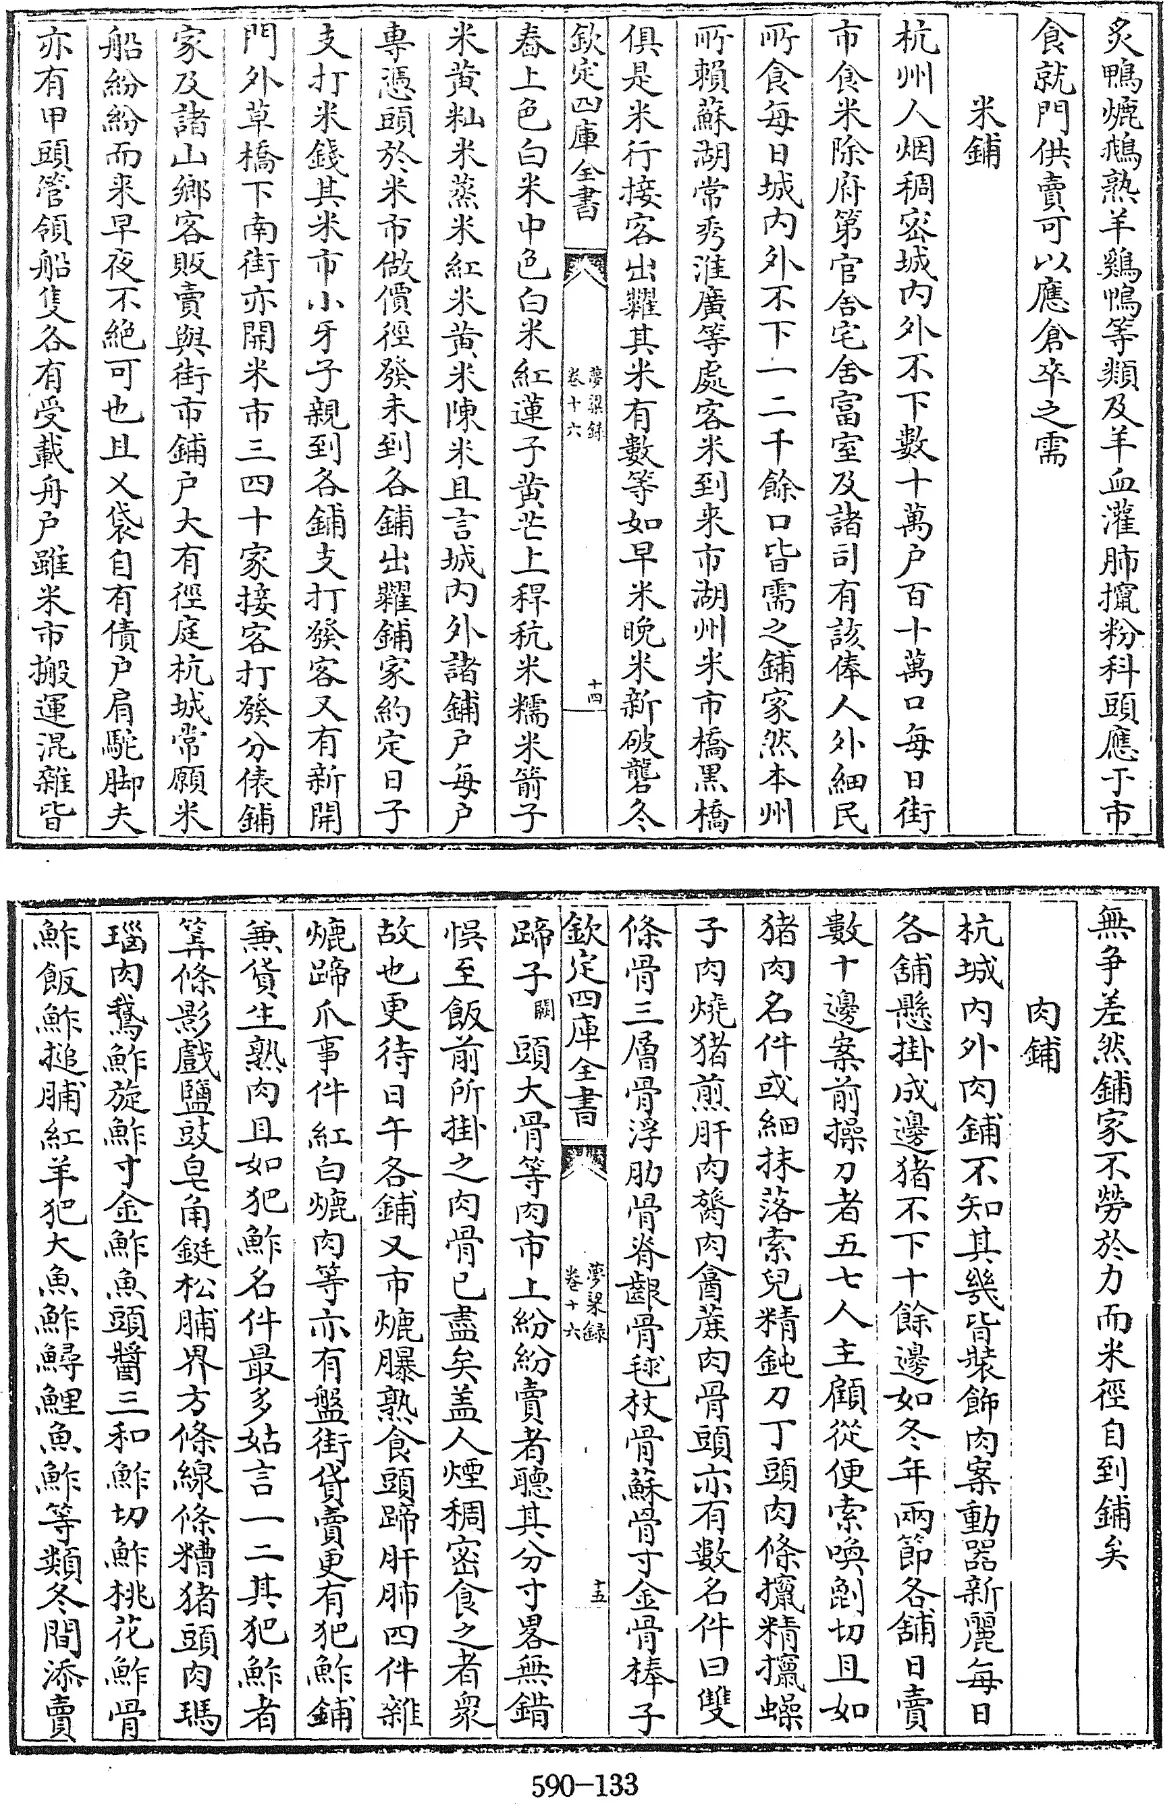 炙鴨爊鵝熟羊鷄鴨等類及羊血灌肺攛粉科頭應于市
食就門供賣可以應倉卒之需
米鋪
杭州人烟稠宻城内外不下數十萬户百十萬口每日街
市食米除府第官舍宅舍富室及諸司有該俸人外細民
所食每日城内外不下一二千餘口皆需之鋪家然本州
所賴蘇湖常秀淮廣等處客米到来市湖州米市橋黒橋
俱是米行接客出糶其米有數等如早米晚米新破礱冬
欽定四庫全書
夢粱録
卷十六
十四
舂上色白米中色白米紅蓮子黄芒上稈秔米糯米箭子
米黄秈米蒸米紅米黄米陳米且言城内外諸鋪户每户
專憑頭於米市做價徑發未到各鋪出糶鋪家約定日子
支打米錢其米市小牙子親到各鋪支打發客又有新開
門外草橋下南街亦開米市三四十家接客打發分俵鋪
家及諸山鄉客販賣與街市鋪户大有徑庭杭城常願米
船紛紛而来早夜不絶可也且叉袋自有債户肩駝脚夫
亦有甲頭管領船隻各有受載舟户雖米市搬運混雜皆
無争差然鋪家不勞於力而米徑自到鋪矣
肉鋪
杭城内外肉鋪不知其幾皆裝飾肉案動器新麗每日
各舖懸掛成邊猪不下十餘邊如冬年兩節各舖日賣
數十邊案前操刀者五七人主顧從便索喚劊切且如
猪肉名件或細抹落索兒精鈍刀丁頭肉條攛精攛燥
子肉燒猪煎肝肉膂肉盦蔗肉骨頭亦有數名件曰雙
條骨三層骨浮肋骨脊齦骨毬杖骨蘇骨寸金骨棒子
欽定四庫全書
夢粱録
卷十六
十五
蹄子闕頭大骨等肉市上紛紛賣者聽其分寸畧無錯
悞至飯前所掛之肉骨已盡矣盖人煙稠密食之者衆
故也更待日午各鋪又市爊曝熟食頭蹄肝肺四件雜
爊蹄爪事件紅白爊肉等亦有盤街貸賣更有犯鮓鋪
兼貨生熟肉且如犯鮓名件最多姑言一二其犯鮓者
筭條影戲鹽豉皂角鋌松脯界方條線條糟猪頭肉瑪
瑙肉鵝鮓旋鮓寸金鮓魚頭醬三和鮓切鮓桃花鮓骨
鮓飯鮓搥脯紅羊犯大魚鮓鱘鯉魚鮓等類冬間添賣
590-133